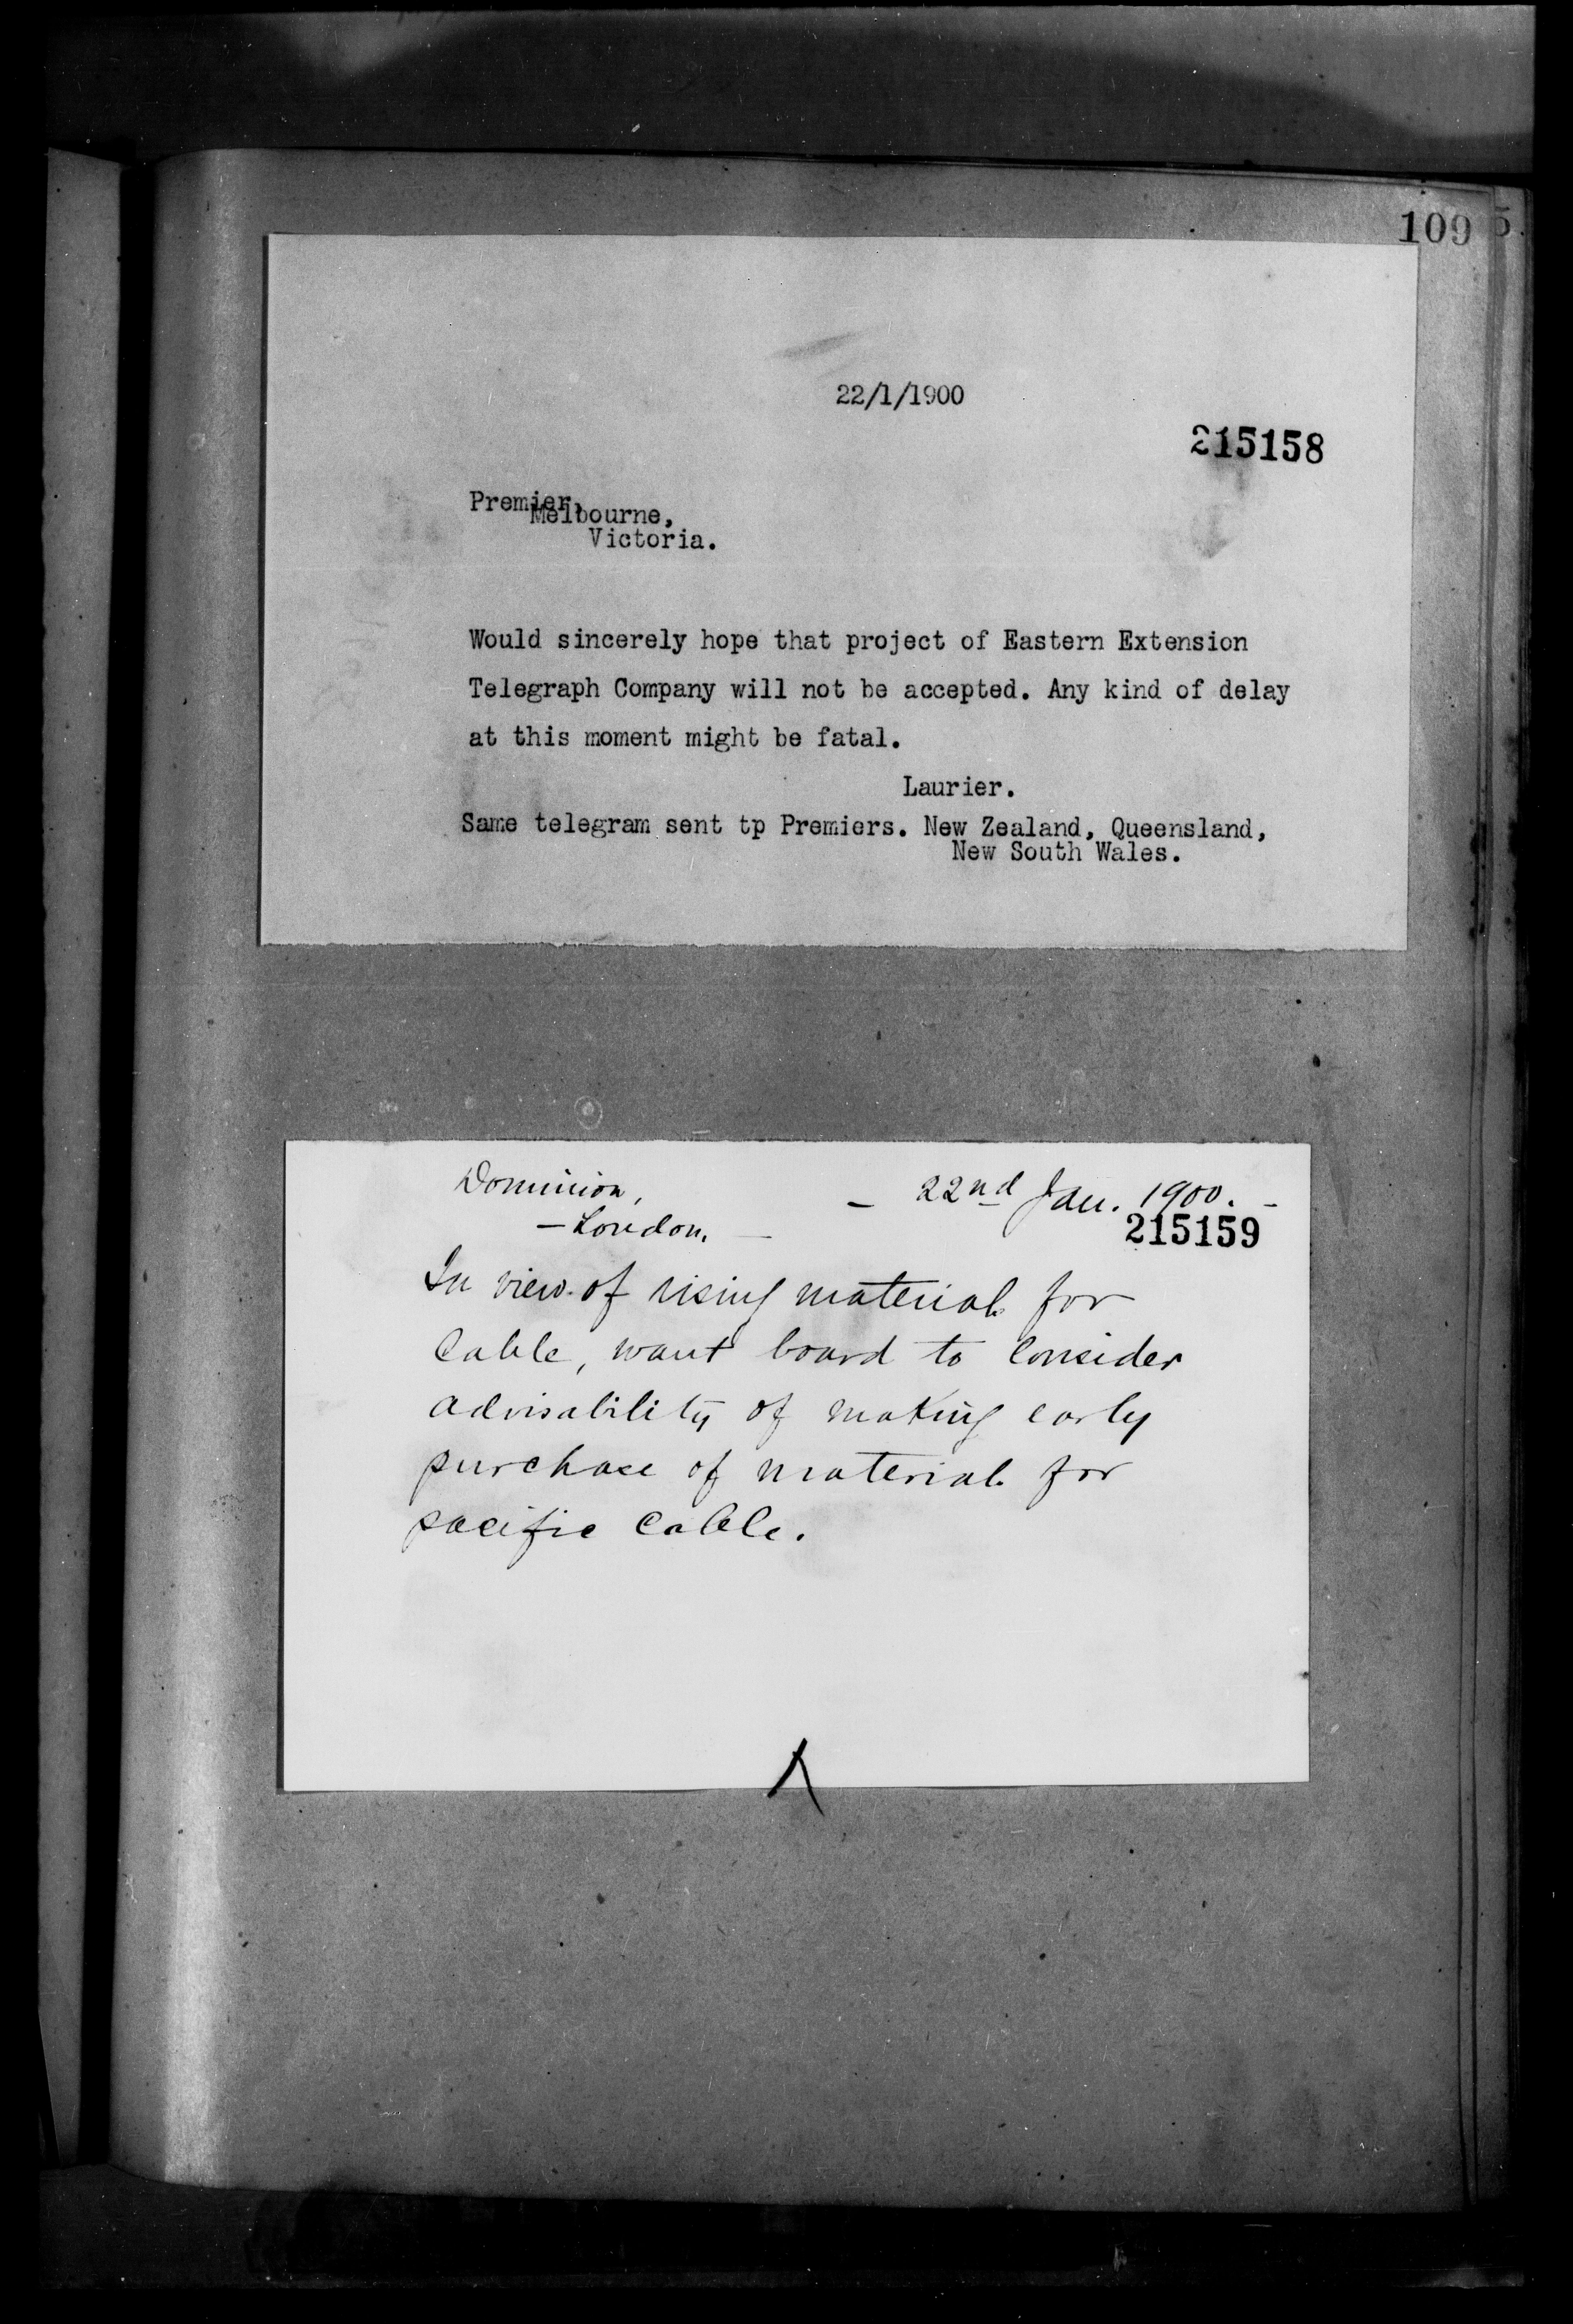 109 5
22/1/1900
215158
Premier,
Melbourne,
Victoria.
Would sincerely hope that project of Eastern Extension
Telegraph Company will not be accepted. Any kind of delay
at this moment might be fatal.
Laurier.
Same telegram sent tp Premiers. New Zealand, Queensland,
New South Wales.
Dominion, - 22nd Jan. 1900. -
- London. -
215159
In view of rising material for
Cable, want board to consider
advisability of making early
purchase of material for
pacific Cable.